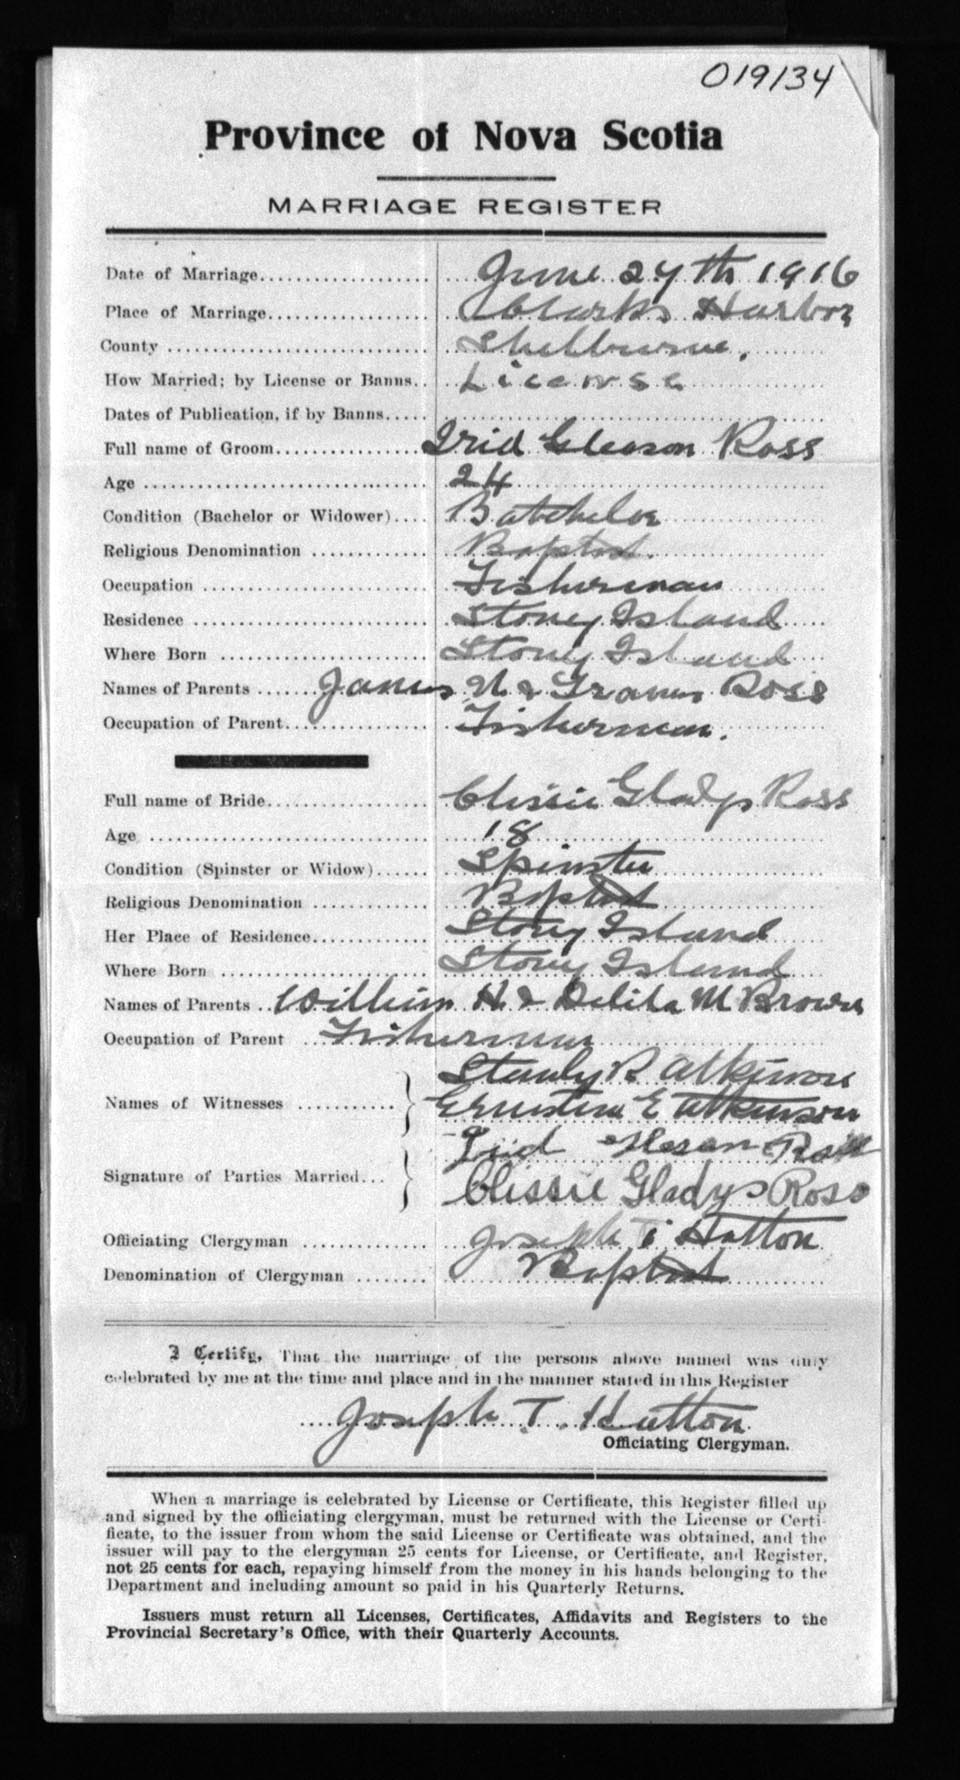 019134
Province of Nova Scotia
MARRIAGE REGISTER
Date of Marriage June 27th 1916
Place of Marriage Clarks Harbor
County Shelburne,
How Married; by License or Banns License
Dates of Publication, if by Banns
Full name of Groom Irid Gleason Ross
Age 24
Condition (Bachelor or Widower) Batchelor
Religious Denomination Baptist.
Occupation Fisherman
Residence Stoney Island
Where Born Stony Island
Names of Parents James & Ross
Occupation of Parent Fisherman.
Full name of Bride Clissie Gladys Ross
Age 18
Condition (Spinster or Widow) Spinster
Religious Denomination Baptist
Her Place of Residence Stony Island
Where Born Stony Island
Names of Parents William H & Delila M Brown
Occupation of Parent Fisherman
Stanly R Atkinson
Names of Witnesses
E Atkinson
Ross
Signature of Parties Married
Clissie Gladys Ross
Officiating Clergyman Joseph T Hatton
Denomination of Clergyman Baptist
I Certify, That the marriage of the persons above named was duly
celebrated by me at the time and place and in the manner stated in this Register
Joseph T. Hatton
Officiating Clergyman.
When a marriage is celebrated by License or Certificate, this Register filled up
and signed by the officiating clergyman, must be returned with the License or Certi-
ficate, to the issuer from whom the said License or Certificate was obtained, and the
issuer will pay to the clergyman 25 cents for License, or Certificate, and Register,
not 25 cents for each, repaying himself from the money in his hands belonging to the
Department and including amount so paid in his Quarterly Returns.
Issuers must return all Licenses, Certificates, Affidavits and Registers to the
Provincial Secretary's Office, with their Quarterly Accounts.